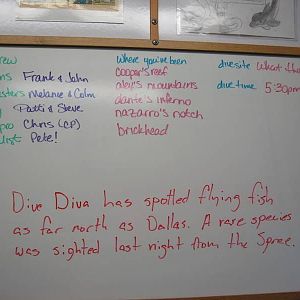 rew
Frank & John
sters Melanie & Colm
Patti & Steve
pro Chris (CP)
list Pete!
where you've been
cooper's reef
alex's mountains
dante's inferno
nazarro's notch
brickhead
divesite What
divetime 5:30pm
Dive Diva has spotted flying fish
as far north as Dallas. A rare species
was sighted last night from the Spree.